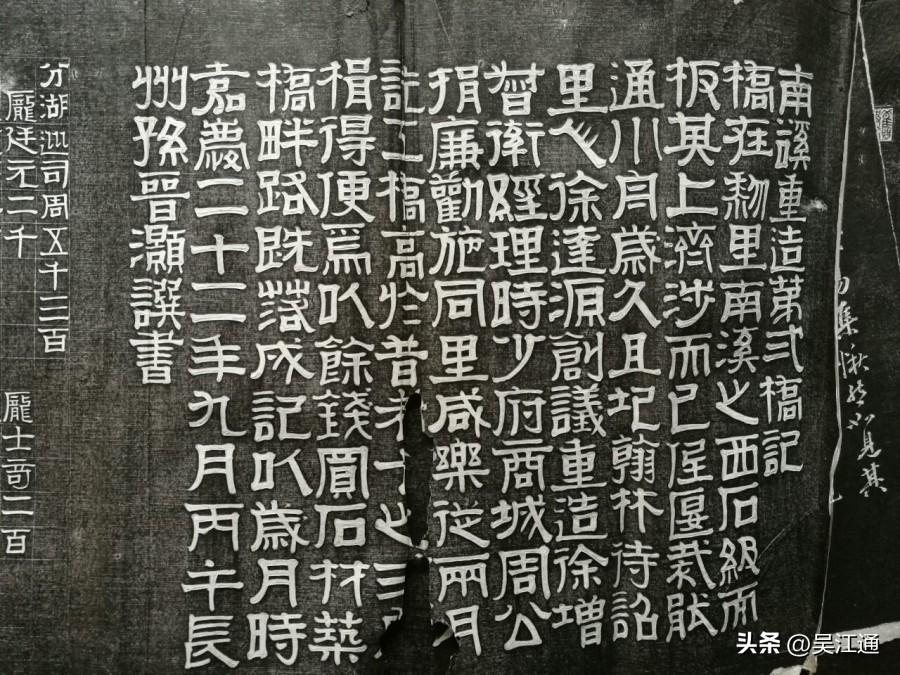 集愀然如見其
南谿重造苐弍橋記
橋在黎里南溪之西石級而
板其上濟涉而已厓匽栽肰
通川月歲久且圮翰林待詔
里人徐達源創議重造徐增
督衛經理時少府商城周公
捐廉勸施同里咸樂從兩月
訖工橋高於昔者十之三
楫得便焉以餘錢買石材築
橋畔路既落成記以歲月時
嘉慶二十二年九月丙午長
州孫晉灝譔書
分湖巡司周五千三百
龐士奇二百
龐廷元二千
头条 @吴江通